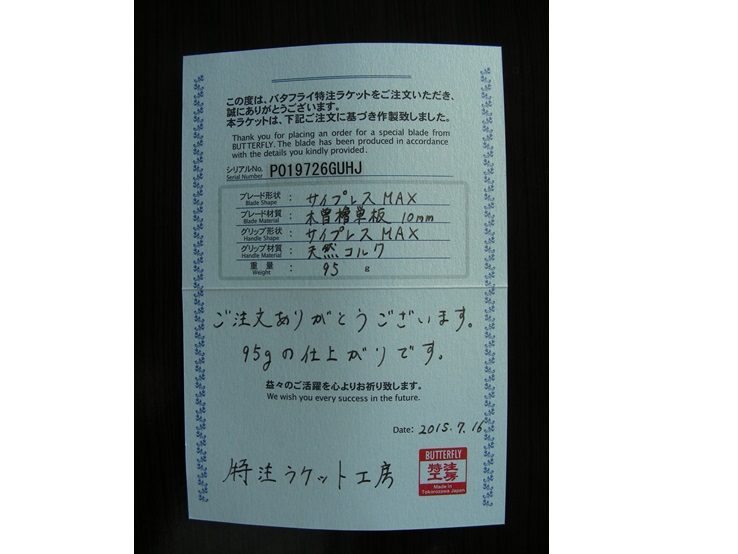 この度は、バタフライ特注ラケットをご注文いただき、
誠にありがとうございます。
本ラケットは、下記ご注文に基づき作製致しました。
Thank you for placing an order for a special blade from
BUTTERFLY. The blade has been produced in accordance
with the details you kindly provided.
シリアルNo. P019726GUHJ
Serial Number
ブレード形状 : サイプレスMAX
Blade Shape
ブレード材質 : 木曽檜単板 10mm
Blade Material
グリップ形状 : サイプレスMAX
Handle Shape
グリップ材質 : 天然コルク
Handle Material
重量 : 95 g
Weight
ご注文ありがとうございます。
95gの仕上がりです。
益々のご活躍を心よりお祈り致します。
We wish you every success in the future.
Date: 2015.7.16
特注ラケット工房
BUTTERFLY
特注
工房
Made in
Tokorozawa Japan